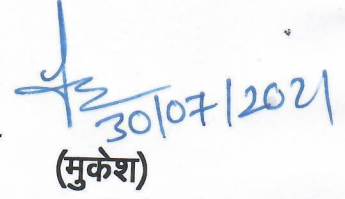 30/07/2021
(मुकेश)